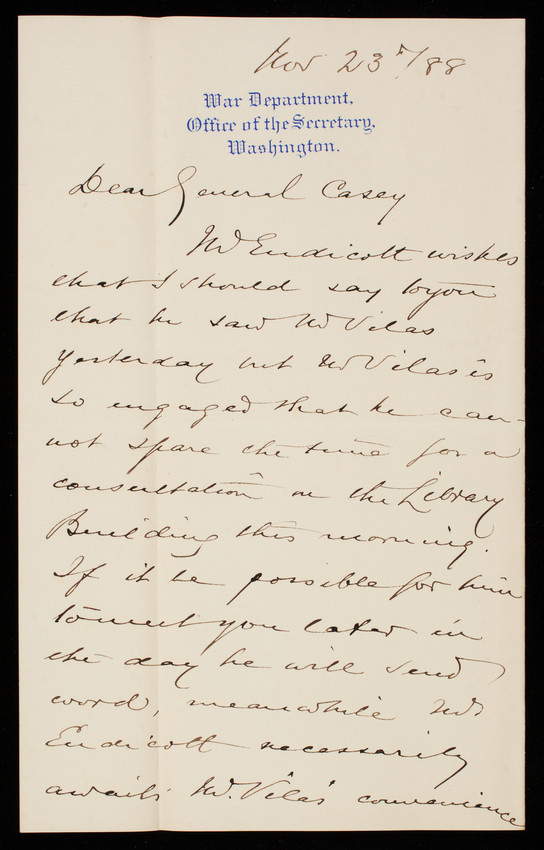 Nov 23d/88
War Department,
Office of the Secretary,
Washington.
Dear General Casey
Mr Endicott wishes
that I should say to you
that he saw Mr Vilas
yesterday but Mr Vilas is
so engaged that he can-
not spare the time for a
consultation on the Library
Building this morning.
If it be possible for him
to meet you later in
the day he will send
word, meanwhile Mr
Endicott necessarily
awaits Mr. Vilas' convenience